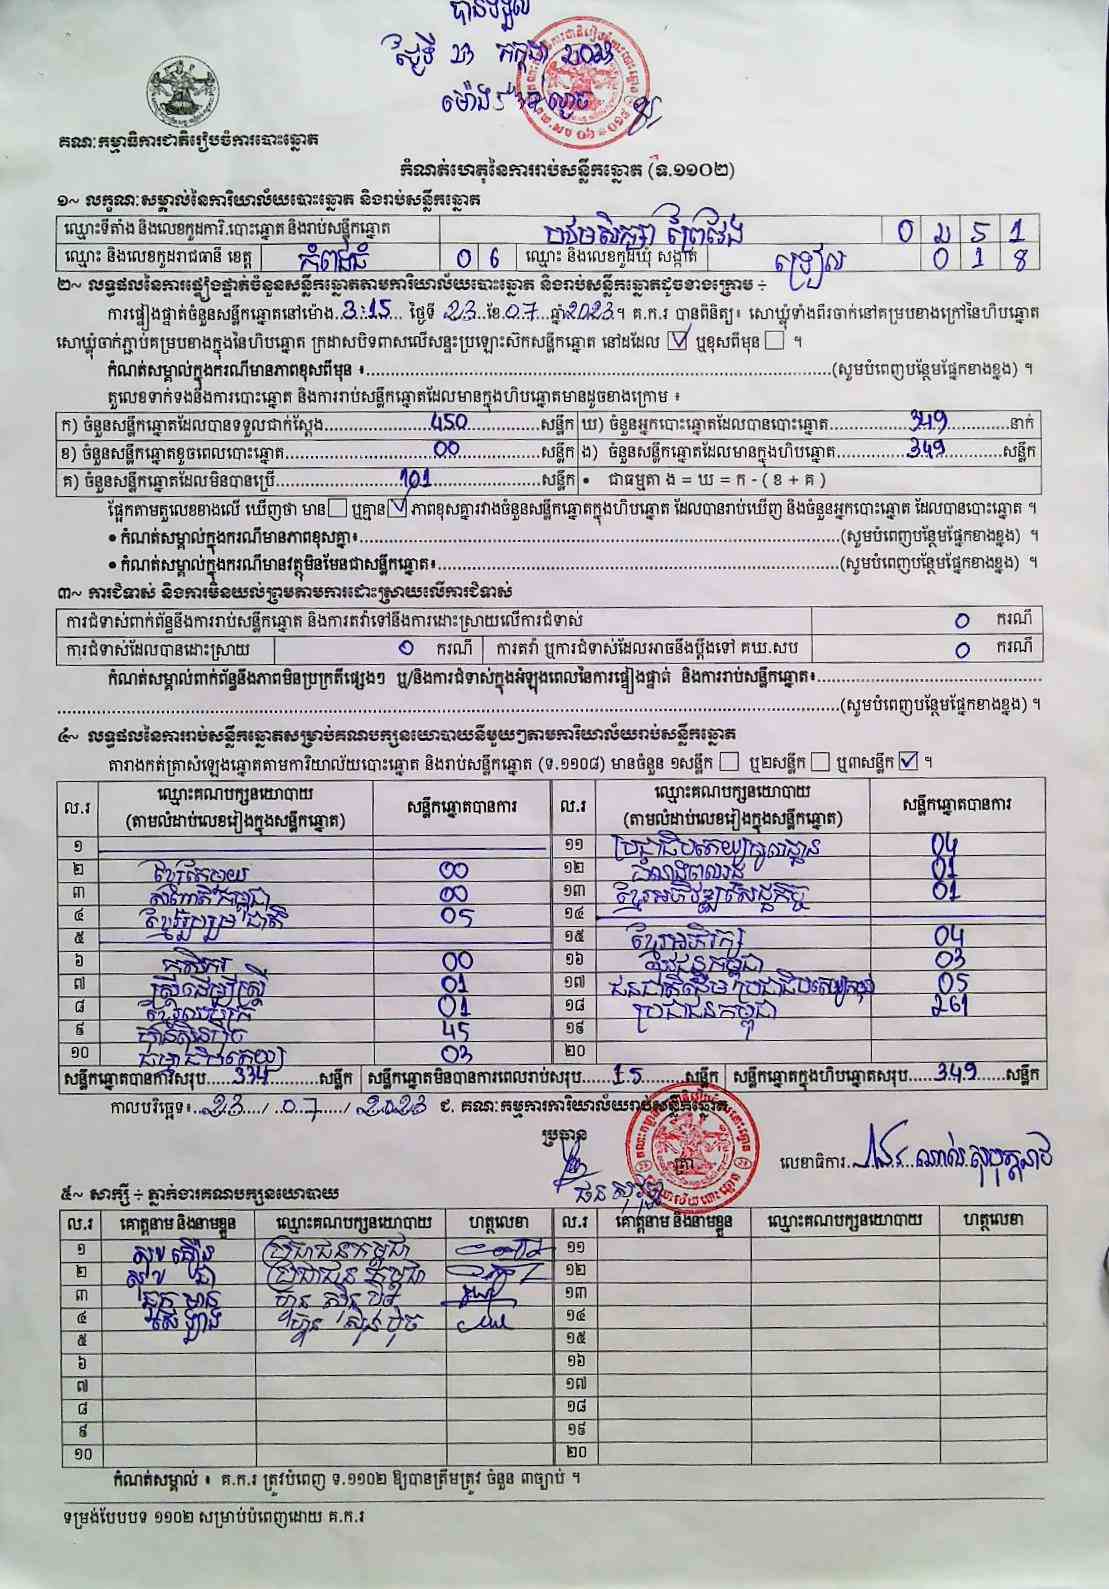 បានទទួល
ថ្ងៃទី ២៣ កក្កដា ២០២៣
ម៉ោង
គណៈកម្មាធិការជាតិរៀបចំការបោះឆ្នោត
កំណត់ហេតុនៃការរាប់សន្លឹកឆ្នោត (ទ.១១០២)
១~ លក្ខណៈសម្គាល់នៃការិយាល័យបោះឆ្នោត និងរាប់សន្លឹកឆ្នោត
ឈ្មោះទីតាំង និងលេខកូដការិ.បោះឆ្នោត និងរាប់សន្លឹកឆ្នោត បឋមសិក្សា ព្រៃវែង
ឈ្មោះ និងលេខកូដរាជធានី ខេត្ត កំពង់ធំ 0 6 ឈ្មោះ និងលេខកូដឃុំ សង្កាត់ ទ្រៀល 0 1 8
២~ លទ្ធផលនៃការផ្ទៀងផ្ទាត់ចំនួនសន្លឹកឆ្នោតតាមការិយាល័យបោះឆ្នោត និងរាប់សន្លឹកឆ្នោតដូចខាងក្រោម ÷
ការផ្ទៀងផ្ទាត់ចំនួនសន្លឹកឆ្នោតនៅម៉ោង 3:15 ថ្ងៃទី 23 ខែ 07 ឆ្នាំ 2023។ គ.ក.រ បានពិនិត្យ៖ សោឃ្លុំទាំងពីរចាក់នៅគម្របខាងក្រៅនៃហិបឆ្នោត
សោឃ្លុំចាក់ភ្ជាប់គម្របខាងក្នុងនៃហិបឆ្នោត ក្រដាសបិទពាសលើសន្ទះប្រឡោះស៊កសន្លឹកឆ្នោត នៅដដែល ☑ ឬខុសពីមុន ☐ ។
កំណត់សម្គាល់ក្នុងករណីមានភាពខុសពីមុន ៖ (សូមបំពេញបន្ថែមផ្នែកខាងខ្នង) ។
តួលេខទាក់ទងនឹងការបោះឆ្នោត និងការរាប់សន្លឹកឆ្នោតដែលមានក្នុងហិបឆ្នោតមានដូចខាងក្រោម ៖
ក) ចំនួនសន្លឹកឆ្នោតដែលបានទទួលជាក់ស្តែង 450 សន្លឹក ឃ) ចំនួនអ្នកបោះឆ្នោតដែលបានបោះឆ្នោត 349 នាក់
ខ) ចំនួនសន្លឹកឆ្នោតខូចពេលបោះឆ្នោត 00 សន្លឹក ង) ចំនួនសន្លឹកឆ្នោតដែលមានក្នុងហិបឆ្នោត 349 សន្លឹក
គ) ចំនួនសន្លឹកឆ្នោតដែលមិនបានប្រើ 101 សន្លឹក • ជាធម្មតា ង = ឃ = ក - ( ខ + គ )
ផ្អែកតាមតួលេខខាងលើ ឃើញថា មាន ☐ ឬគ្មាន ☑ ភាពខុសគ្នារវាងចំនួនសន្លឹកឆ្នោតក្នុងហិបឆ្នោត ដែលបានរាប់ឃើញ និងចំនួនអ្នកបោះឆ្នោត ដែលបានបោះឆ្នោត ។
• កំណត់សម្គាល់ក្នុងករណីមានភាពខុសគ្នា៖ (សូមបំពេញបន្ថែមផ្នែកខាងខ្នង) ។
• កំណត់សម្គាល់ក្នុងករណីមានវត្ថុមិនមែនជាសន្លឹកឆ្នោត៖ (សូមបំពេញបន្ថែមផ្នែកខាងខ្នង) ។
៣~ ការជំទាស់ និងការមិនយល់ព្រមតាមការដោះស្រាយលើការជំទាស់
ការជំទាស់ពាក់ព័ន្ធនឹងការរាប់សន្លឹកឆ្នោត និងការតវ៉ាទៅនឹងការដោះស្រាយលើការជំទាស់ 0 ករណី
ការជំទាស់ដែលបានដោះស្រាយ 0 ករណី ការតវ៉ា ឬការជំទាស់ដែលអាចនឹងប្តឹងទៅ គឃ.សប 0 ករណី
កំណត់សម្គាល់ពាក់ព័ន្ធនឹងភាពមិនប្រក្រតីផ្សេងៗ ឬ/និងការជំទាស់ក្នុងអំឡុងពេលនៃការផ្ទៀងផ្ទាត់ និងការរាប់សន្លឹកឆ្នោត៖
(សូមបំពេញបន្ថែមផ្នែកខាងខ្នង) ។
៤~ លទ្ធផលនៃការរាប់សន្លឹកឆ្នោតសម្រាប់គណបក្សនយោបាយនីមួយៗតាមការិយាល័យរាប់សន្លឹកឆ្នោត
តារាងកត់ត្រាសំឡេងឆ្នោតតាមការិយាល័យបោះឆ្នោត និងរាប់សន្លឹកឆ្នោត (ទ.១១០៨) មានចំនួន ១សន្លឹក ☐ ឬ២សន្លឹក ☐ ឬ៣សន្លឹក ☑ ។
ល.រ ឈ្មោះគណបក្សនយោបាយ (តាមលំដាប់លេខរៀងក្នុងសន្លឹកឆ្នោត) សន្លឹកឆ្នោតបានការ ល.រ ឈ្មោះគណបក្សនយោបាយ (តាមលំដាប់លេខរៀងក្នុងសន្លឹកឆ្នោត) សន្លឹកឆ្នោតបានការ
១ ១១ ប្រជាធិបតេយ្យមូលដ្ឋាន 04
២ ខ្មែរតែមួយ 00 ១២ កំលាំងពលរដ្ឋ 01
៣ សញ្ជាតិកម្ពុជា 00 ១៣ ខ្មែរអភិវឌ្ឍសេដ្ឋកិច្ច 01
៤ ខ្មែររួបរួមជាតិ 05 ១៤
៥ ១៥ ខ្មែរអភិរក្ស 04
៦ កសិករ 00 ១៦ យុវជនកម្ពុជា 03
៧ ស្ត្រីដើម្បីស្ត្រី 01 ១៧ ជនជាតិដើមប្រជាធិបតេយ្យកម្ពុជា 05
៨ ខ្មែរឈប់ក្រ 01 ១៨ ប្រជាជនកម្ពុជា 261
៩ ហ្វ៊ុនស៊ិនប៉ិច 45 ១៩
១០ ធម្មាធិបតេយ្យ 03 ២០
សន្លឹកឆ្នោតបានការសរុប 334 សន្លឹក សន្លឹកឆ្នោតមិនបានការពេលរាប់សរុប 15 សន្លឹក សន្លឹកឆ្នោតក្នុងហិបឆ្នោតសរុប 349 សន្លឹក
កាលបរិច្ឆេទ៖ 23 / 07 / 2023 ជ. គណៈកម្មការការិយាល័យរាប់សន្លឹកឆ្នោត
ប្រធាន
លេខាធិការ
៥~ សាក្សី ÷ ភ្នាក់ងារគណបក្សនយោបាយ
ល.រ គោត្តនាម និងនាមខ្លួន ឈ្មោះគណបក្សនយោបាយ ហត្ថលេខា ល.រ គោត្តនាម និងនាមខ្លួន ឈ្មោះគណបក្សនយោបាយ ហត្ថលេខា
១ ប្រជាជនកម្ពុជា ១១
២ ប្រជាជនកម្ពុជា ១២
៣ ហ្វ៊ុនស៊ិនប៉ិច ១៣
៤ ហ្វ៊ុនស៊ិនប៉ិច ១៤
៥ ១៥
៦ ១៦
៧ ១៧
៨ ១៨
៩ ១៩
១០ ២០
កំណត់សម្គាល់ ៖ គ.ក.រ ត្រូវបំពេញ ទ.១១០២ ឱ្យបានត្រឹមត្រូវ ចំនួន ៣ច្បាប់ ។
ទម្រង់បែបបទ ១១០២ សម្រាប់បំពេញដោយ គ.ក.រ